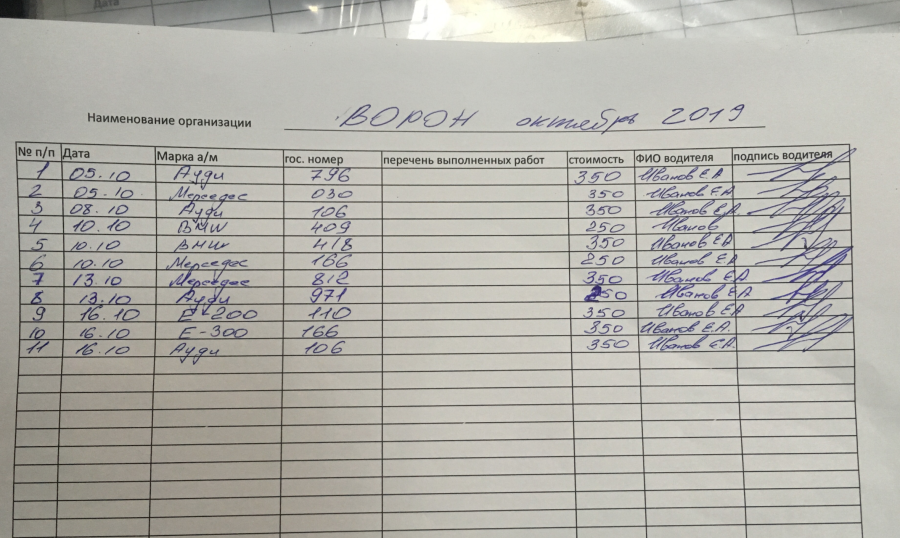 Дата
Наименование организации ВОРОН октябрь 2019
№ п/п Дата Марка а/м гос. номер перечень выполненных работ стоимость ФИО водителя подпись водителя
1 05.10 Ауди 796 350 Иванов Е.А
2 05.10 Мерседес 030 350 Иванов Е.А.
3 08.10 Ауди 106 350 Иванов Е.А.
4 10.10 BMW 409 250 Иванов
5 10.10 BMW 418 350 Иванов ЕА
6 10.10 Мерседес 166 250 Иванов Е.А
7 13.10 Мерседес 812 350 Иванов Е.А
8 13.10 Ауди 971 250 Иванов ЕА
9 16.10 Е-200 110 350 Иванов ЕА
10 16.10 Е-300 166 350 Иванов Е.А.
11 16.10 Ауди 106 350 Иванов ЕА